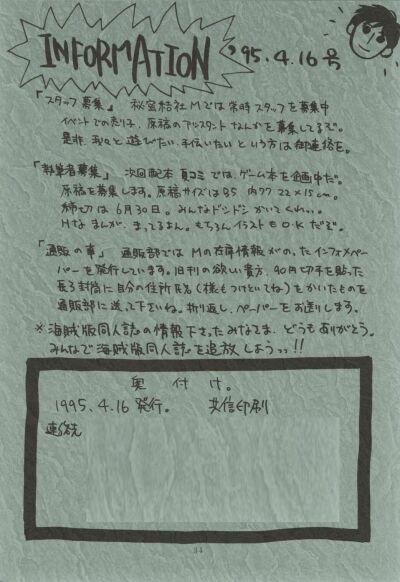 INFORMATION '95.4.16号
「スタッフ募集」 秘密結社Mでは常時スタッフを募集中
イベントでの売り子、原稿のアシスタントなんかを募集してるぞ。
是非、我々と遊びたい、手伝いたいという方は御連絡を。
「執筆者募集」 次回配本夏コミでは、ゲーム本を企画中だ。
原稿を募集します。原稿サイズはB5 内ワク22×15cm。
締切は6月30日。みんなドンドンかいてくれ。
Hなまんが、まってるさん。もちろんイラストもO.Kだぞ。
「通販の事」 通販部ではMの在庫情報がのったインフォメペー
パーを発行しています。旧刊の欲しい貴方、90円切手を貼った
長3封筒に自分の住所氏名(様もつけといてね)をかいたものを
通販部に送って下さいね。折り返し、ペーパーをお送りします。
※海賊版同人誌の情報下さったみなさま、どうもありがとう。
みんなで海賊版同人誌を追放しようっっ!!
奥付け。
1995.4.16発行。 共信印刷
連絡先
34